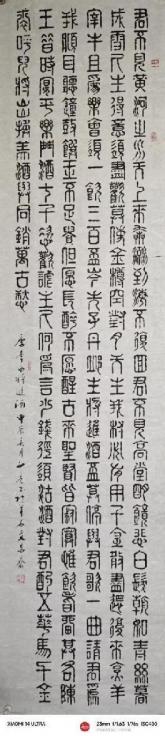 君不見黃河之水天上來奔流到海不復回君不見高堂明鏡悲白髮朝如青絲暮
成雪人生得意須盡歡莫使金樽空對月天生我材必有用千金散盡還復來烹羊
宰牛且爲樂會須一飲三百杯岑夫子丹丘生將進酒杯莫停與君歌一曲請君爲
我傾耳聽鐘鼓饌玉不足貴但願長醉不願醒古來聖賢皆寂寞惟有飲者留其名陳
王昔時宴平樂斗酒十千恣歡謔主人何爲言少錢徑須沽取對君酌五花馬千金
裘呼兒將出換美酒與同銷萬古愁
唐李白將進酒 甲辰
XIAOMI 14 ULTRA
23mm f/1.63 ISO400